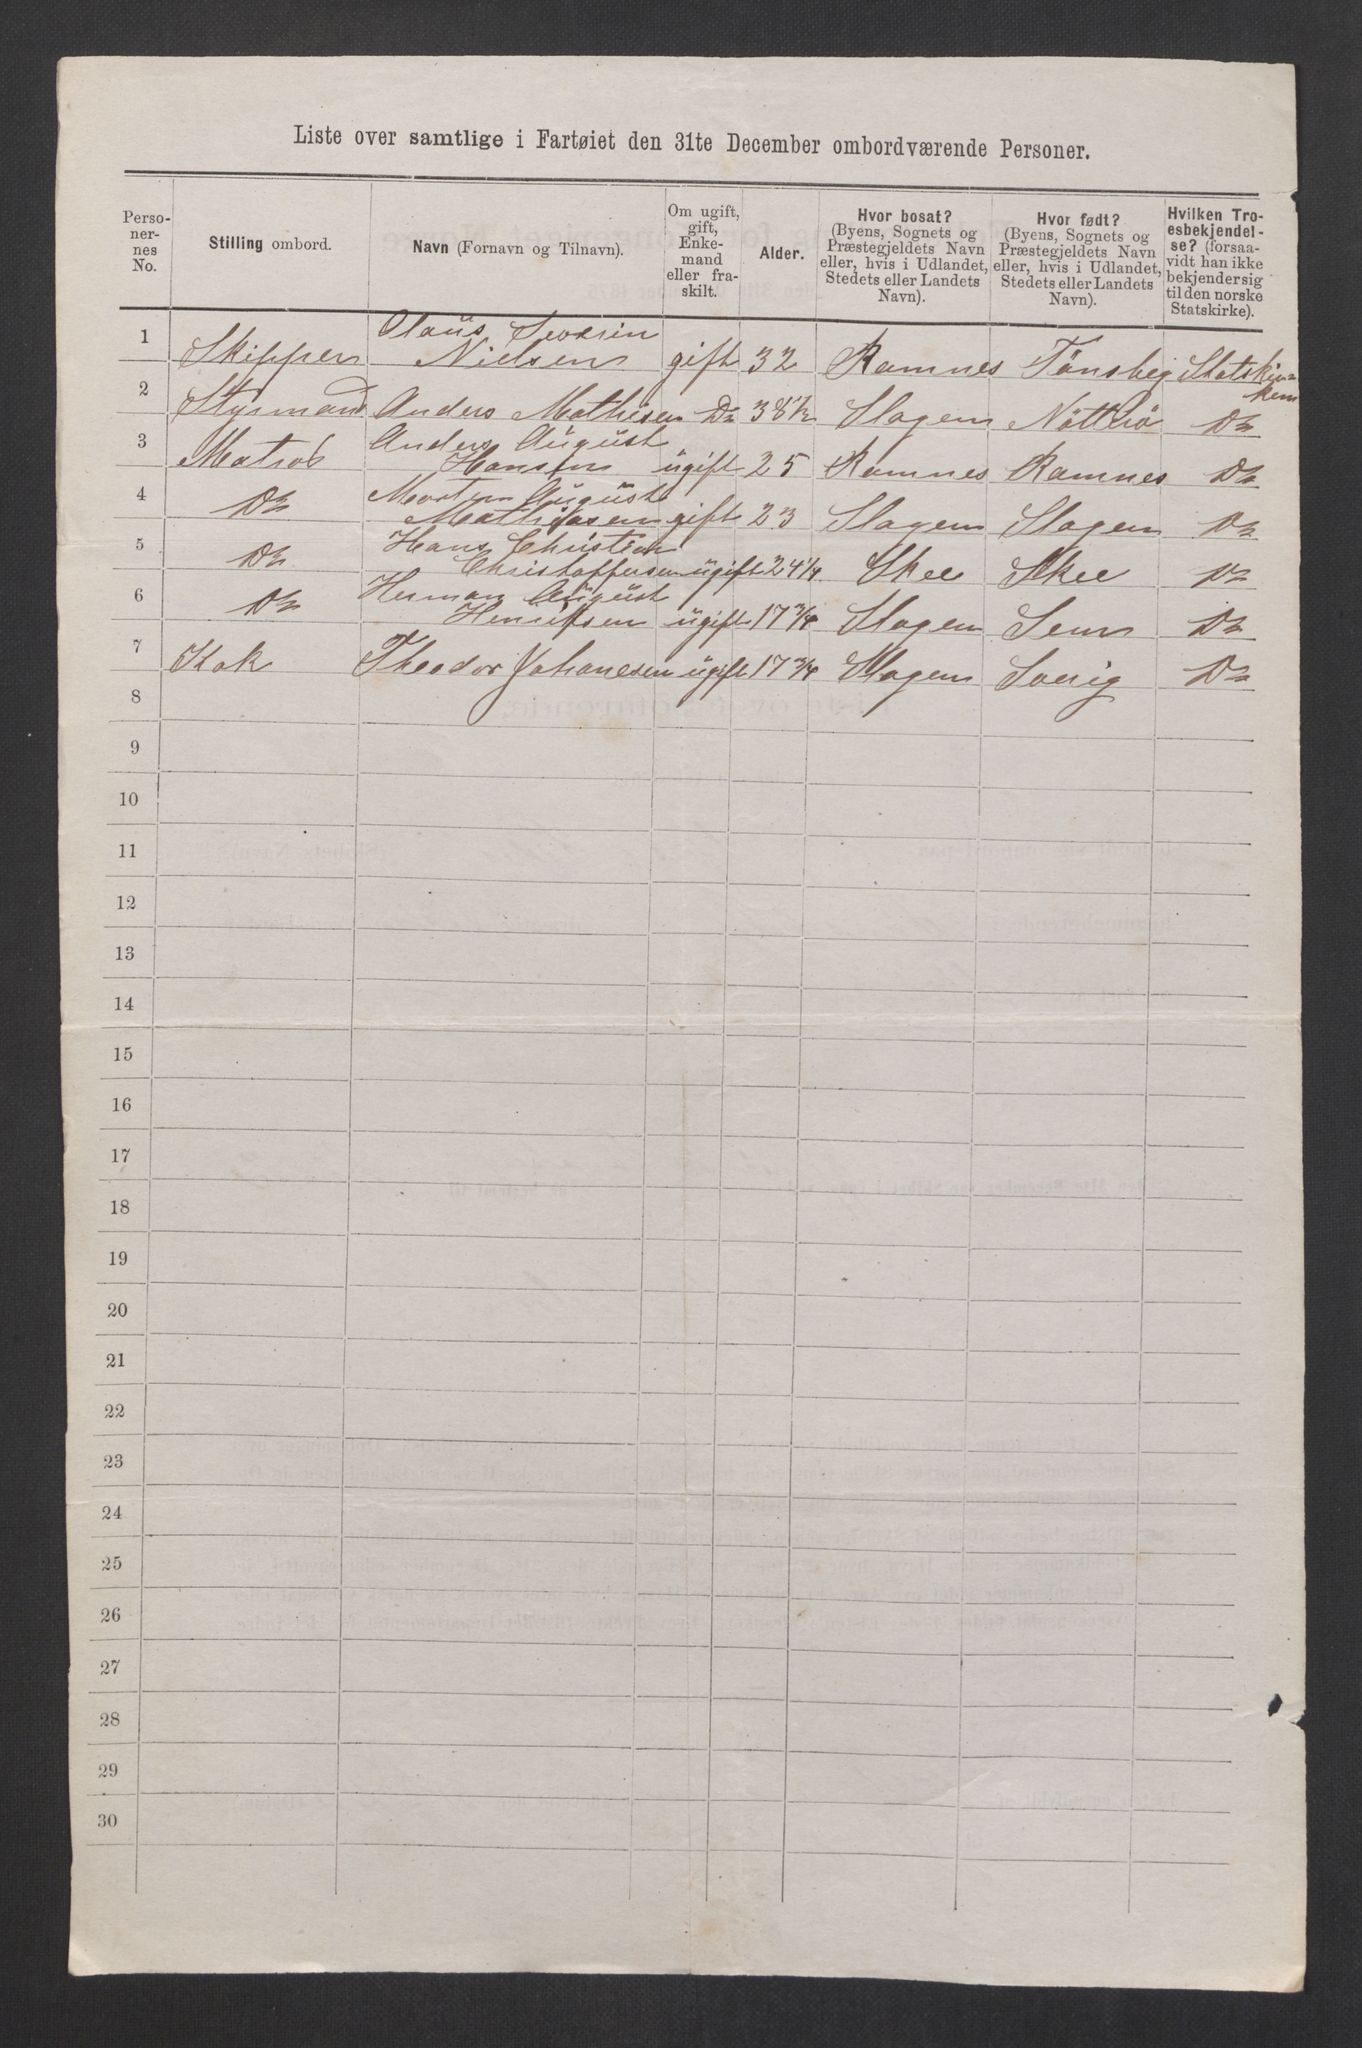 Liste over samtlige i Fartøiet den 31te December ombordværende Personer.
Perso-
ner-
nes
No.
Stilling ombord.
Navn (Fornavn og Tilnavn).
Om ugift,
gift,
Enke-
mand
eller fra-
skilt.
Alder.
Hvor bosat?
(Byens, Sognets og
Præstegjeldets Navn
eller, hvis i Udlandet,
Stedets eller Landets
Navn).
Hvor født?
(Byens, Sognets og
Præstegjeldets Navn
eller, hvis i Udlandet,
Stedets eller Landets
Navn).
Hvilken Tro-
esbekjendel-
se? (forsaa-
vidt han ikke
bekjender sig
til den norske
Statskirke).
1 Skipper Olaüs Severin
Nielsen gift 32 Ramnes Tönsbeg Statskir=
ken
2 Styrmand Anders Mathisen Do 38½ Slagen Nötterö Do
3 Matros Anders Aügüst
Hansen ugift 25 Ramnes Ramnes Do
4 Do Martin Aügüst
Mathiasen gift 23 Slagen Slagen Do
5 Do Hans Christian
Christoffersen ugift 24¼ Skee Skee Do
6 Do Herman Aügüst
Henriksen ugift 17¾ Slagen Sem Do
7 Kok Theodor Johanesen ugift 17¾ Slagen Sverig Do
8
9
10
11
12
13
14
15
16
17
18
19
20
21
22
23
24
25
26
27
28
29
30